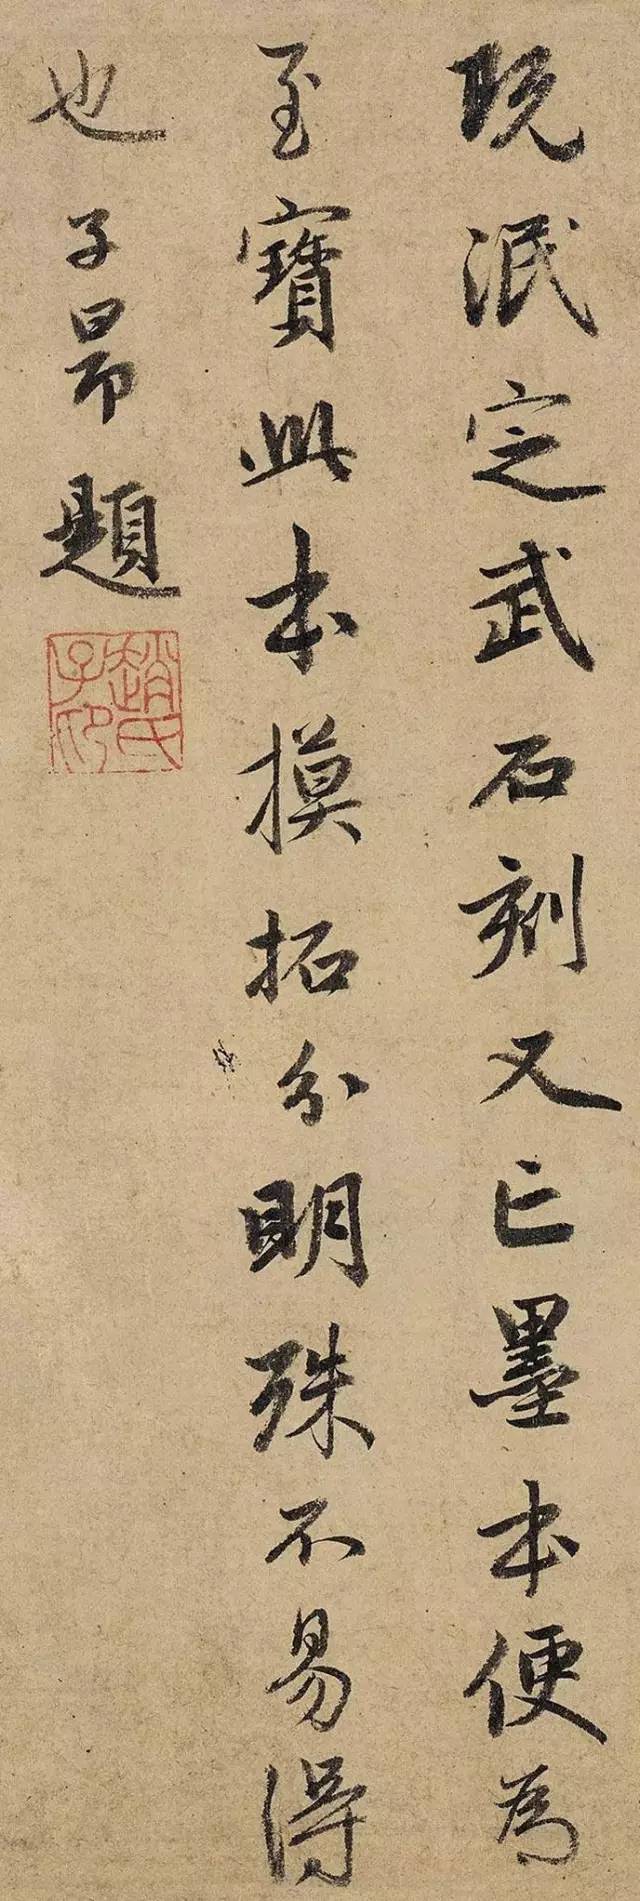 既泯定武石刻又亡墨本便為
至寶此本摸拓分明殊不易得
也子昂題
趙氏子印